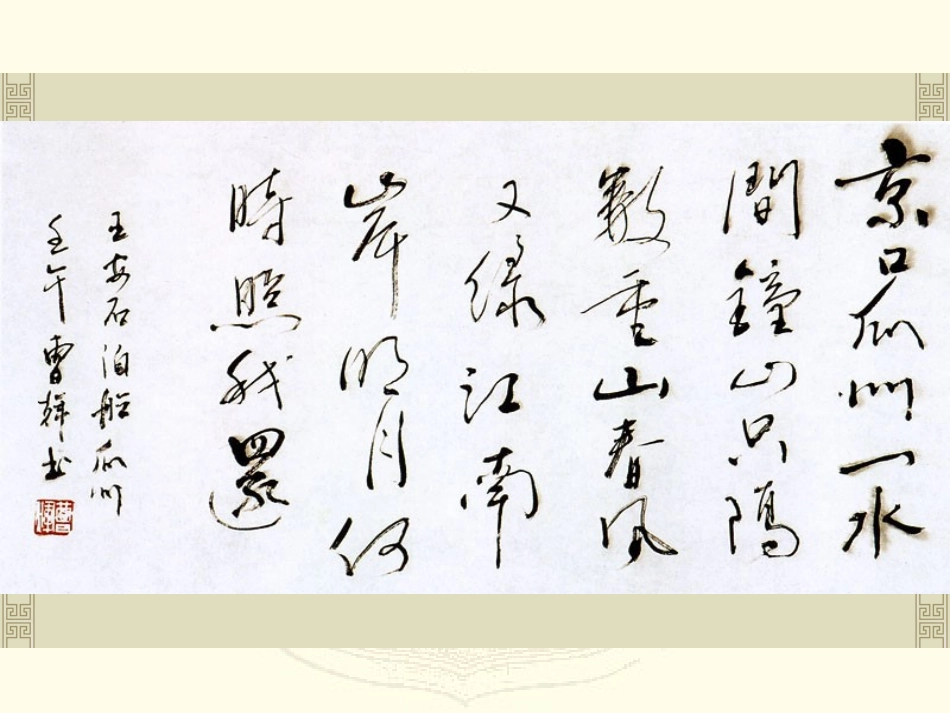 京口瓜州一水
間鐘山只隔
數重山春風
又綠江南
岸明月何
時照我還
王安石泊船瓜州
壬午曹輝书